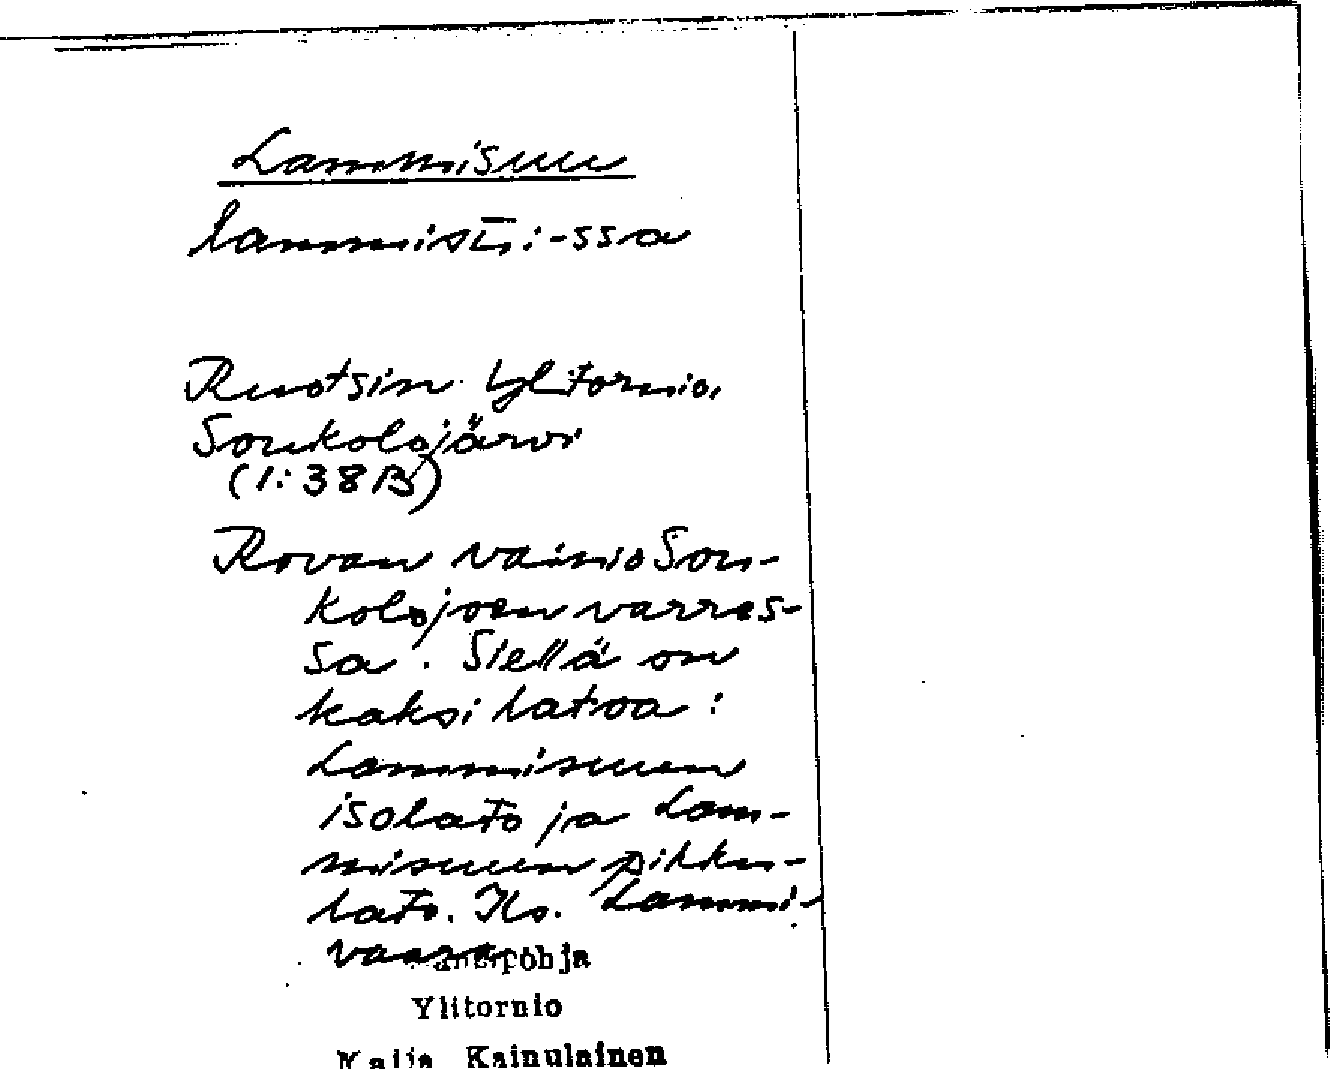 Lammisuu
lammisū:-ssa
Ruotsin Ylitornio,
Soukolojärvi
(1:38B)
Rovan vainio Sou-
kolojoen varres-
sa. Siellä on
kaksi latoa:
Lammisuun
isolato ja Lam-
misuun pikku-
lato. Ks. Lammi-
vaara
Peräpohja
Ylitornio
Maija Kainulainen